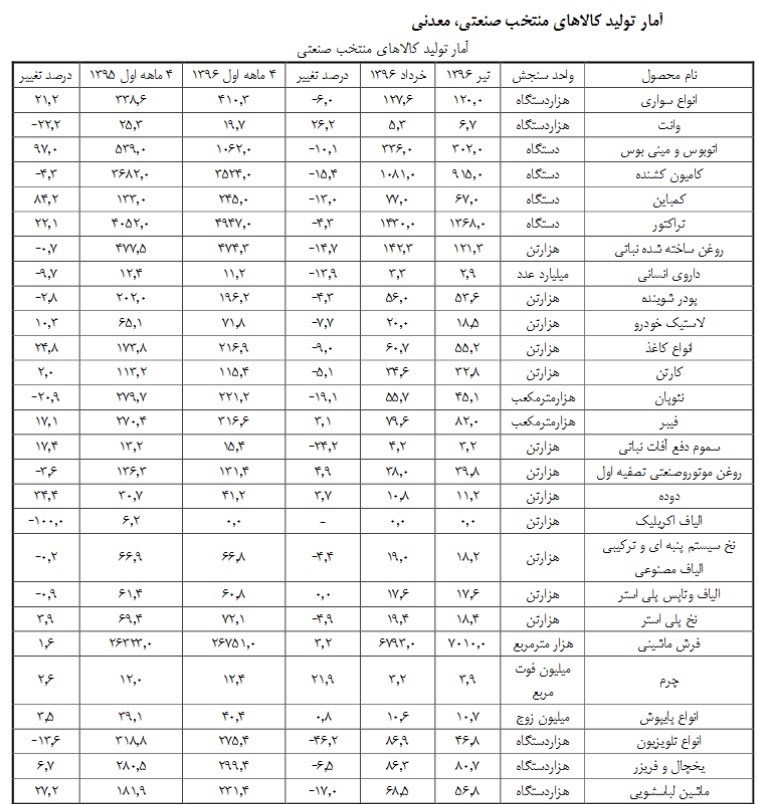 آمار تولید کالاهای منتخب صنعتی، معدنی
آمار تولید کالاهای منتخب صنعتی
نام محصول واحد سنجش تیر ۱۳۹۶ خرداد ۱۳۹۶ درصد تغییر ۴ ماهه اول ۱۳۹۶ ۴ ماهه اول ۱۳۹۵ درصد تغییر
انواع سواری هزاردستگاه ۱۲۰,۰ ۱۲۷,۶ -۶,۰ ۴۱۰,۳ ۳۳۸,۶ ۲۱,۲
وانت هزاردستگاه ۶,۷ ۵,۳ ۲۶,۲ ۱۹,۷ ۲۵,۳ -۲۲,۲
اتوبوس و مینی بوس دستگاه ۳۰۲,۰ ۳۳۶,۰ -۱۰,۱ ۱۰۶۲,۰ ۵۳۹,۰ ۹۷,۰
کامیون کشنده دستگاه ۹۱۵,۰ ۱۰۸۱,۰ -۱۵,۴ ۳۵۲۴,۰ ۳۶۸۲,۰ -۴,۳
کمباین دستگاه ۶۷,۰ ۷۷,۰ -۱۳,۰ ۲۴۵,۰ ۱۳۳,۰ ۸۴,۲
تراکتور دستگاه ۱۳۶۸,۰ ۱۴۳۰,۰ -۴,۳ ۴۹۴۷,۰ ۴۰۵۲,۰ ۲۲,۱
روغن ساخته شده نباتی هزارتن ۱۲۱,۳ ۱۴۲,۳ -۱۴,۷ ۴۷۴,۳ ۴۷۷,۵ -۰,۷
داروی انسانی میلیارد عدد ۲,۹ ۳,۳ -۱۳,۹ ۱۱,۲ ۱۲,۴ -۹,۷
پودر شوینده هزارتن ۵۳,۶ ۵۶,۰ -۴,۳ ۱۹۶,۲ ۲۰۲,۰ -۲,۸
لاستیک خودرو هزارتن ۱۸,۵ ۲۰,۰ -۷,۷ ۷۱,۸ ۶۵,۱ ۱۰,۳
انواع کاغذ هزارتن ۵۵,۲ ۶۰,۷ -۹,۰ ۲۱۶,۹ ۱۷۳,۸ ۲۴,۸
کارتن هزارتن ۳۲,۸ ۳۴,۶ -۵,۱ ۱۱۵,۴ ۱۱۳,۲ ۲,۰
نئوپان هزارمترمکعب ۴۵,۱ ۵۵,۷ -۱۹,۱ ۲۲۱,۲ ۲۷۹,۷ -۲۰,۹
فیبر هزارمترمکعب ۸۲,۰ ۷۹,۶ ۳,۱ ۳۱۶,۶ ۲۷۰,۴ ۱۷,۱
سموم دفع آفات نباتی هزارتن ۳,۲ ۴,۲ -۲۴,۲ ۱۵,۴ ۱۳,۲ ۱۷,۴
روغن موتوروصنعتی تصفیه اول هزارتن ۳۹,۸ ۳۸,۰ ۴,۹ ۱۳۱,۴ ۱۳۶,۳ -۳,۶
دوده هزارتن ۱۱,۲ ۱۰,۸ ۳,۷ ۴۱,۲ ۳۰,۷ ۳۴,۴
الیاف اکریلیک هزارتن ۰,۰ ۰,۰ - ۰,۰ ۶,۲ -۱۰۰,۰
نخ سیستم پنبه ای و ترکیبی
الیاف مصنوعی هزارتن ۱۸,۲ ۱۹,۰ -۴,۴ ۶۶,۸ ۶۶,۹ -۰,۲
الیاف وتاپس پلی استر هزارتن ۱۷,۶ ۱۷,۶ ۰,۰ ۶۰,۸ ۶۱,۴ -۰,۹
نخ پلی استر هزارتن ۱۸,۴ ۱۹,۴ -۴,۹ ۷۲,۱ ۶۹,۴ ۳,۹
فرش ماشینی هزار مترمربع ۷۰۱۰,۰ ۶۷۹۳,۰ ۳,۲ ۲۶۷۵۱,۰ ۲۶۳۲۳,۰ ۱,۶
چرم میلیون فوت
مربع ۳,۹ ۳,۲ ۲۱,۹ ۱۲,۴ ۱۲,۰ ۲,۶
انواع پاپوش میلیون زوج ۱۰,۷ ۱۰,۶ ۰,۸ ۴۰,۴ ۳۹,۱ ۳,۵
انواع تلویزیون هزاردستگاه ۴۶,۸ ۸۶,۹ -۴۶,۲ ۲۷۵,۴ ۳۱۸,۸ -۱۳,۶
یخچال و فریزر هزاردستگاه ۸۰,۷ ۸۶,۳ -۶,۵ ۲۹۹,۴ ۲۸۰,۵ ۶,۷
ماشین لباسشویی هزاردستگاه ۵۶,۸ ۶۸,۵ -۱۷,۰ ۲۳۱,۴ ۱۸۱,۹ ۲۷,۲